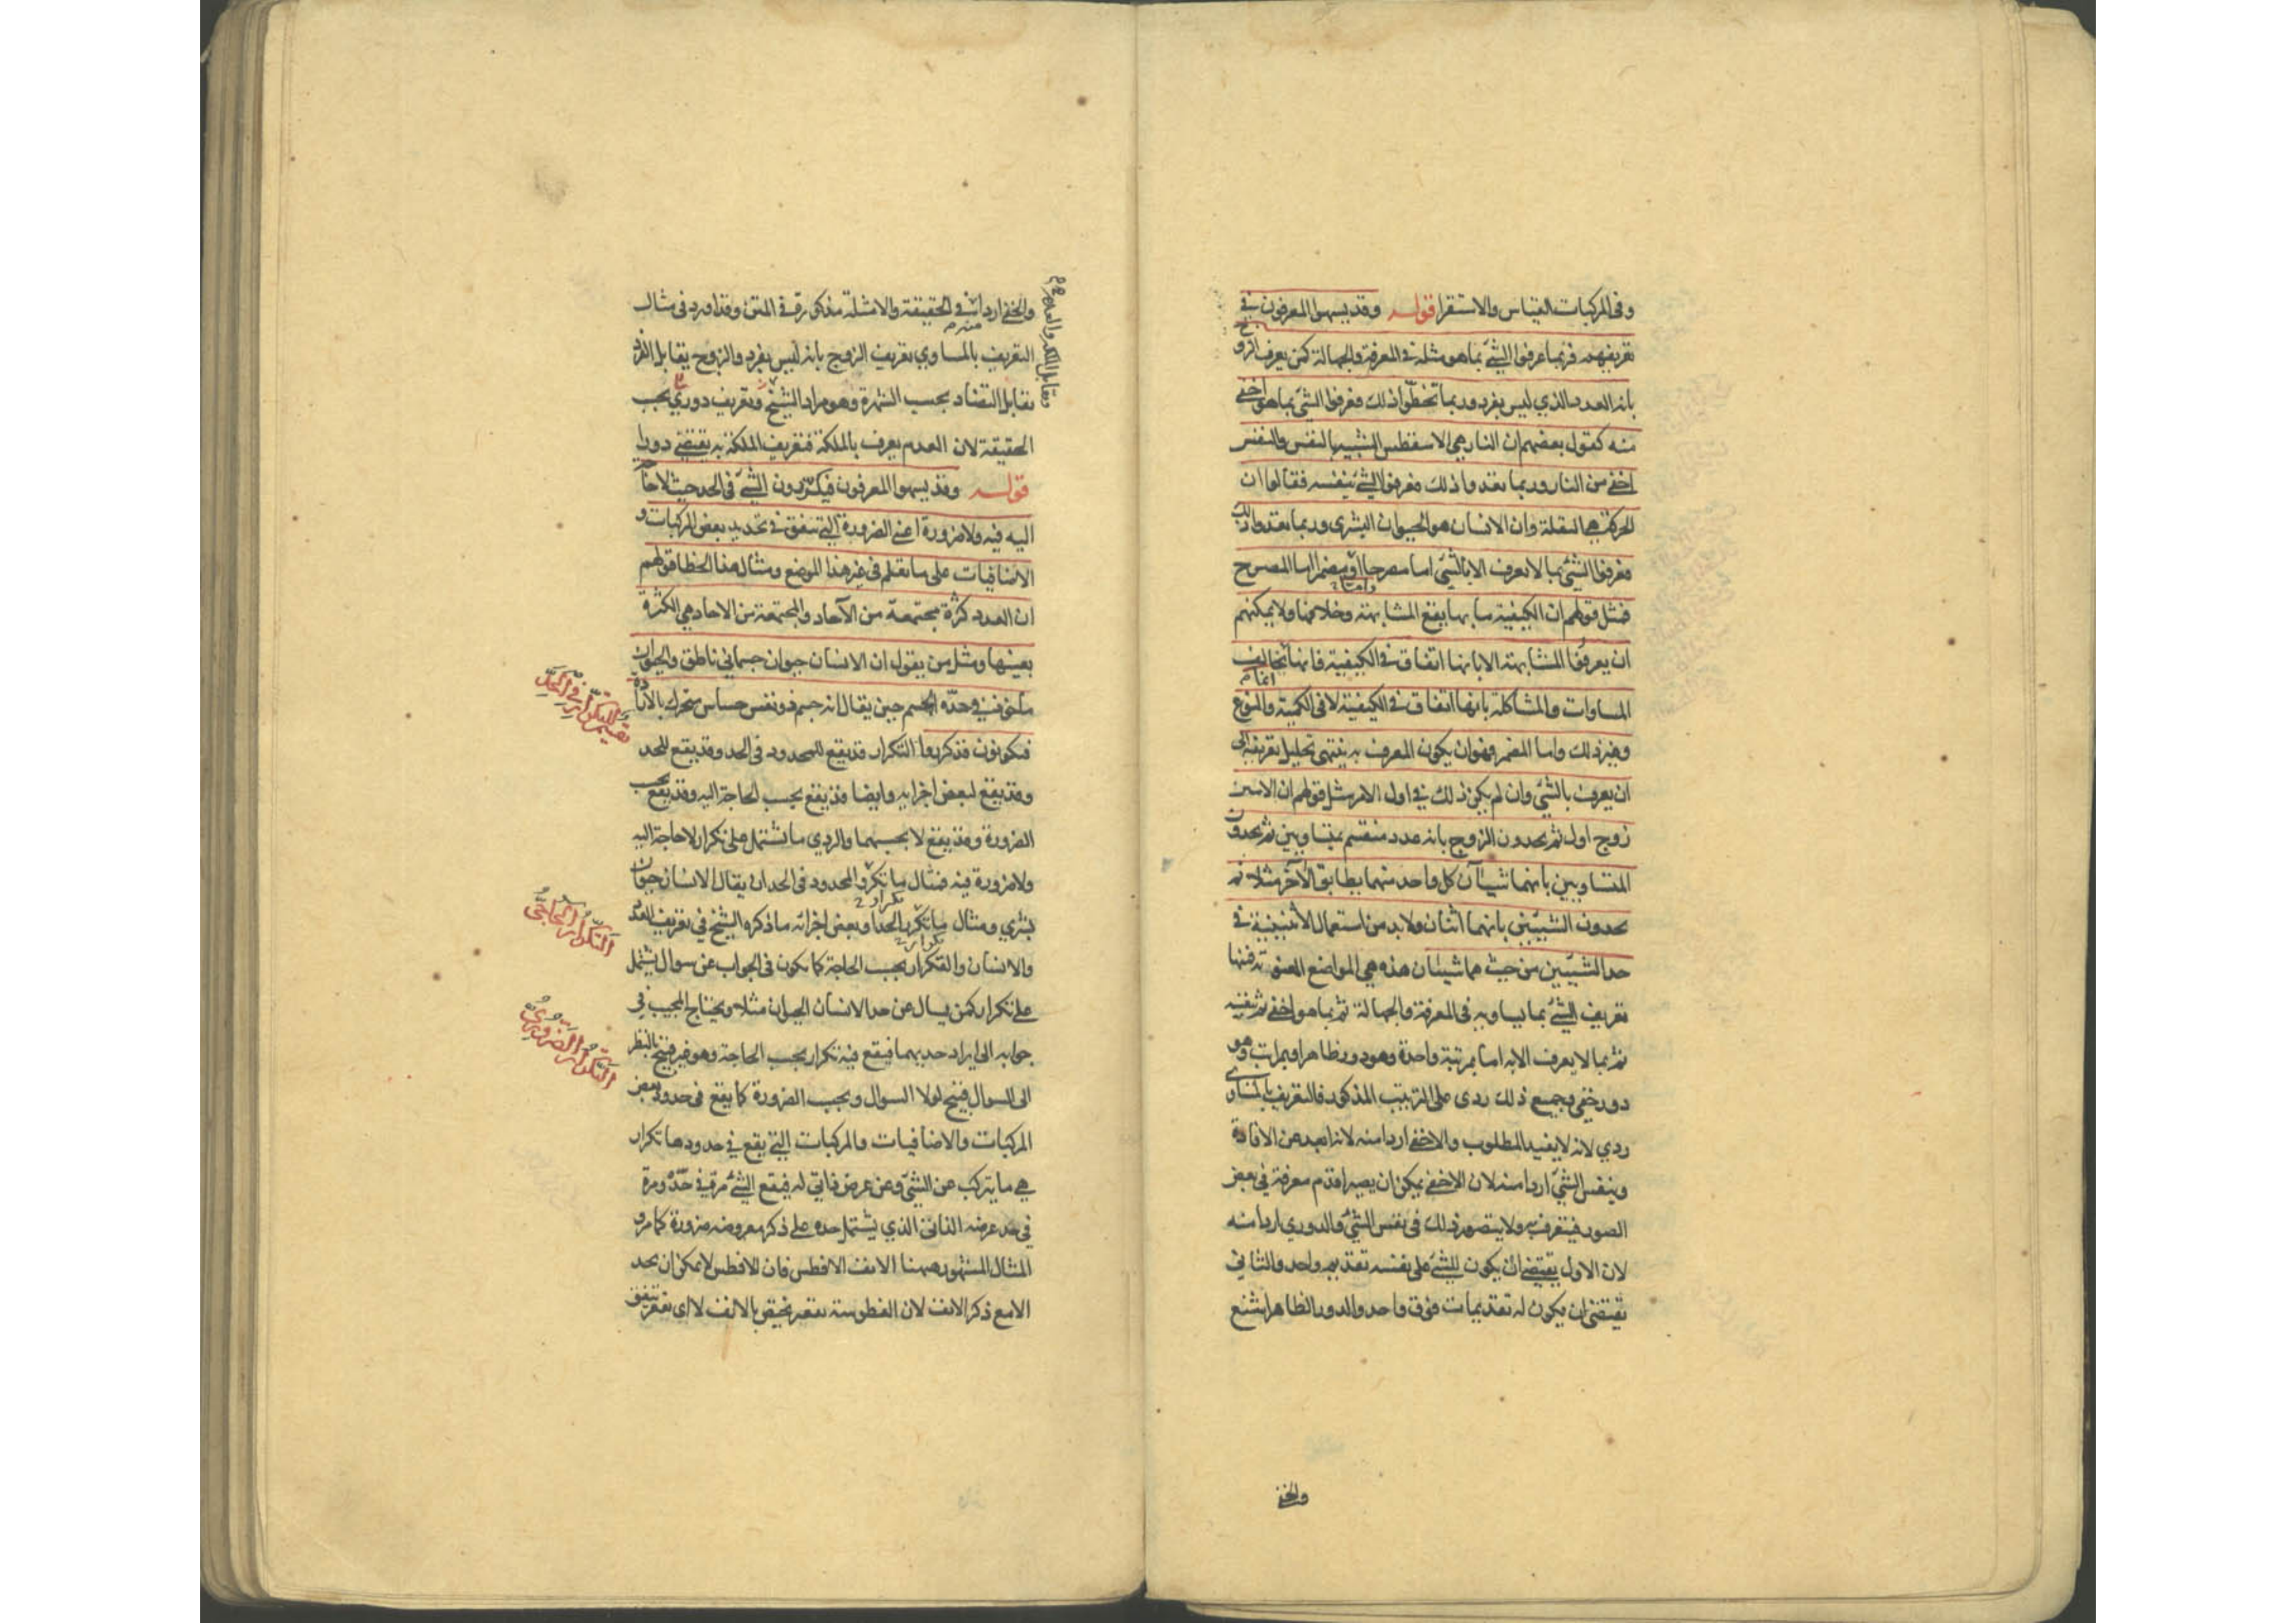 وفى المركبات القياس والاستقرا قوله وقد يسهوا المعرفون في
تعريفهم فربما عرفوا الشئ بما هو مثله في المعرفة والجهالة كمن يعرف الزوج
بانه العدد الذي ليس بفرد وربما تخطوا ذلك فعرفوا الشئ بما هو اخفى
منه كقول بعضهم ان النار هي الاسطقس الشبيه بالنفس والنفس
اخفى من النار وربما تعدوا ذلك فعرفوا الشئ بنفسه فقالوا ان
الحركة هي النقلة وان الانسان هو الحيوان البشرى وربما تعدوا ذلك
فعرفوا الشئ بما لا يعرف الا بالشئ اما مصرحا او مضمرا اما المصرح
فمثل قولهم ان الكيفية ما بها يقع المشابهة وخلافها ولا يمكنهم
ان يعرفوا المشابهة الا بانها اتفاق في الكيفية فانها تخالف
المساوات والمشاكلة بانها اتفاق في الكيفية لا فى الكمية والنوع
وغير ذلك واما المضمر فهو ان يكون المعرف به ينتهى تحليل تعريفه الى
ان يعرف بالشئ وان لم يكن ذلك في اول الامر مثل قولهم ان الاثنين
زوج اول ثم يحدون الزوج بانه عدد منقسم بمتساويين ثم يحدون
المتساويين بانهما شيئان كل واحد منهما يطابق الآخر مثلا ثم
يحدون الشيئين بانهما اثنان ولا بد من استعمال الاثنينية في
حد الشيئين من حيث هما شيئان هذه هي المواضع المعنوية فمنها
تعريف الشئ بما يساويه فى المعرفة والجهالة ثم بما هو اخفى ثم بنفسه
ثم بما لا يعرف الا به اما بمرتبة واحدة وهو دور ظاهر او بمراتب وهو
دور خفى وجميع ذلك ردى على الترتيب المذكور فالتعريف بالمساوى
ردي لانه لا يفيد المطلوب والاخفى اردا منه لانه ابعد عن الافادة
وبنفس الشئ اردا منه لان الاخفى يمكن ان يصير اقدم معرفة في بعض
الصور فيتعرف به ولا يتصور ذلك فى نفس الشئ والدوري اردا منه
لان الاول يقتضى ان يكون للشئ على نفسه تقديم واحد والثاني
يقتضى ان يكون له تقديمات فوق واحد والدور الظاهر اشنع
والخفى
والخفى اردا في الحقيقة والامثلة مذكورة في المتن وقد اورد فى مثال
وتقابل الملكة والعدم
التعريف بالمساوي تعريف الزوج بانه ليس بفرد والزوج يقابل الفرد
تقابل التضاد بحسب الشهرة وهو مراد الشيخ وتعريف دوري بحسب
الحقيقة لان العدم يعرف بالملكة فتعريف الملكة به يقتضى دورا
قوله وقد يسهوا المعرفون فيكررون الشئ فى الحد حيث لا حاجة
اليه فيه ولا ضرورة اعنى الضرورة التى تتفق في تحديد بعض المركبات و
الاضافيات على ما يعلم فى غير هذا الموضع ومثال هذا الخطا قولهم
ان العدد كثرة مجتمعة من الآحاد والمجتمعة من الاحاد هي الكثرة
بعينها ومثل من يقول ان الانسان حيوان جسماني ناطق والحيوان
ماخوذ في حده الجسم حين يقال انه جسم ذو نفس حساس متحرك بالارادة
فيكونون قد كرروا التكرار قد يقع للمحدود فى الحد وقد يقع للحد
تقسيم التكرار في الحد
وقد يقع لبعض اجزايه وايضا قد يقع بحسب الحاجة اليه وقد يقع بحسب
الضرورة وقد يقع لا بحسبهما والردي ما تشتمل على تكرار لا حاجة اليه
ولا ضرورة فيه فمثال ما تكرر المحدود فى الحد ان يقال الانسان حيوان
بشري ومثال ما تكرر الحد او بعض اجزائه ما ذكره الشيخ في تعريف العدد
التكرار الحاجى
والانسان والتكرار بحسب الحاجة كما يكون فى الجواب عن سوال يشتمل
على تكرار كمن يسال عن حد الانسان الحيوان مثلا ويحتاج المجيب في
جوابه الى ايراد حديهما فيقع فيه تكرار بحسب الحاجة وهو غير قبيح بالنظر
التكرار الضرورى
الى السوال قبيح لولا السوال وبحسب الضرورة كما يقع فى حدود بعض
المركبات والاضافيات والمركبات التى يقع في حدودها تكرار
هي ما يتركب عن الشئ وعن عرض ذاتي له فيقع الشئ مرة في حده ومرة
في حد عرضه الذاتى الذي يشتمل حده على ذكر معروضه ضرورة كما مر و
المثال المشهور ههنا الانف الافطس فان الافطس لا يمكن ان يحد
الا مع ذكر الانف لان الفطوسة تقعير يختص بالانف لا اى تقعير يتفق